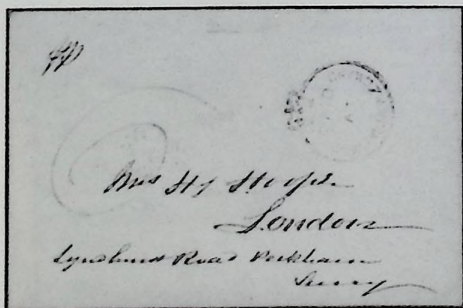 Mrs Hy Hooper
London
Lyndhurst Road Peckham
Surrey